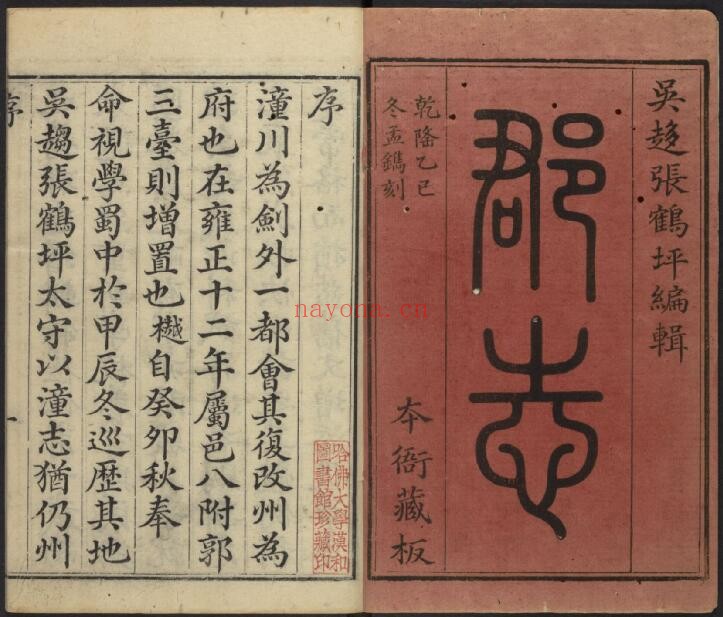 吳趨張鶴坪編輯
郡志
本衙藏板
乾隆乙巳
冬孟鐫刻
序
潼川為劍外一都會其復改州為
府也在雍正十二年屬邑八附郭
三臺則增置也樾自癸卯秋奉
命視學蜀中於甲辰冬巡歷其地
吳趨張鶴坪太守以潼志猶仍州
序
一
哈佛大學漢和
圖書館珍藏印
nayona.cn